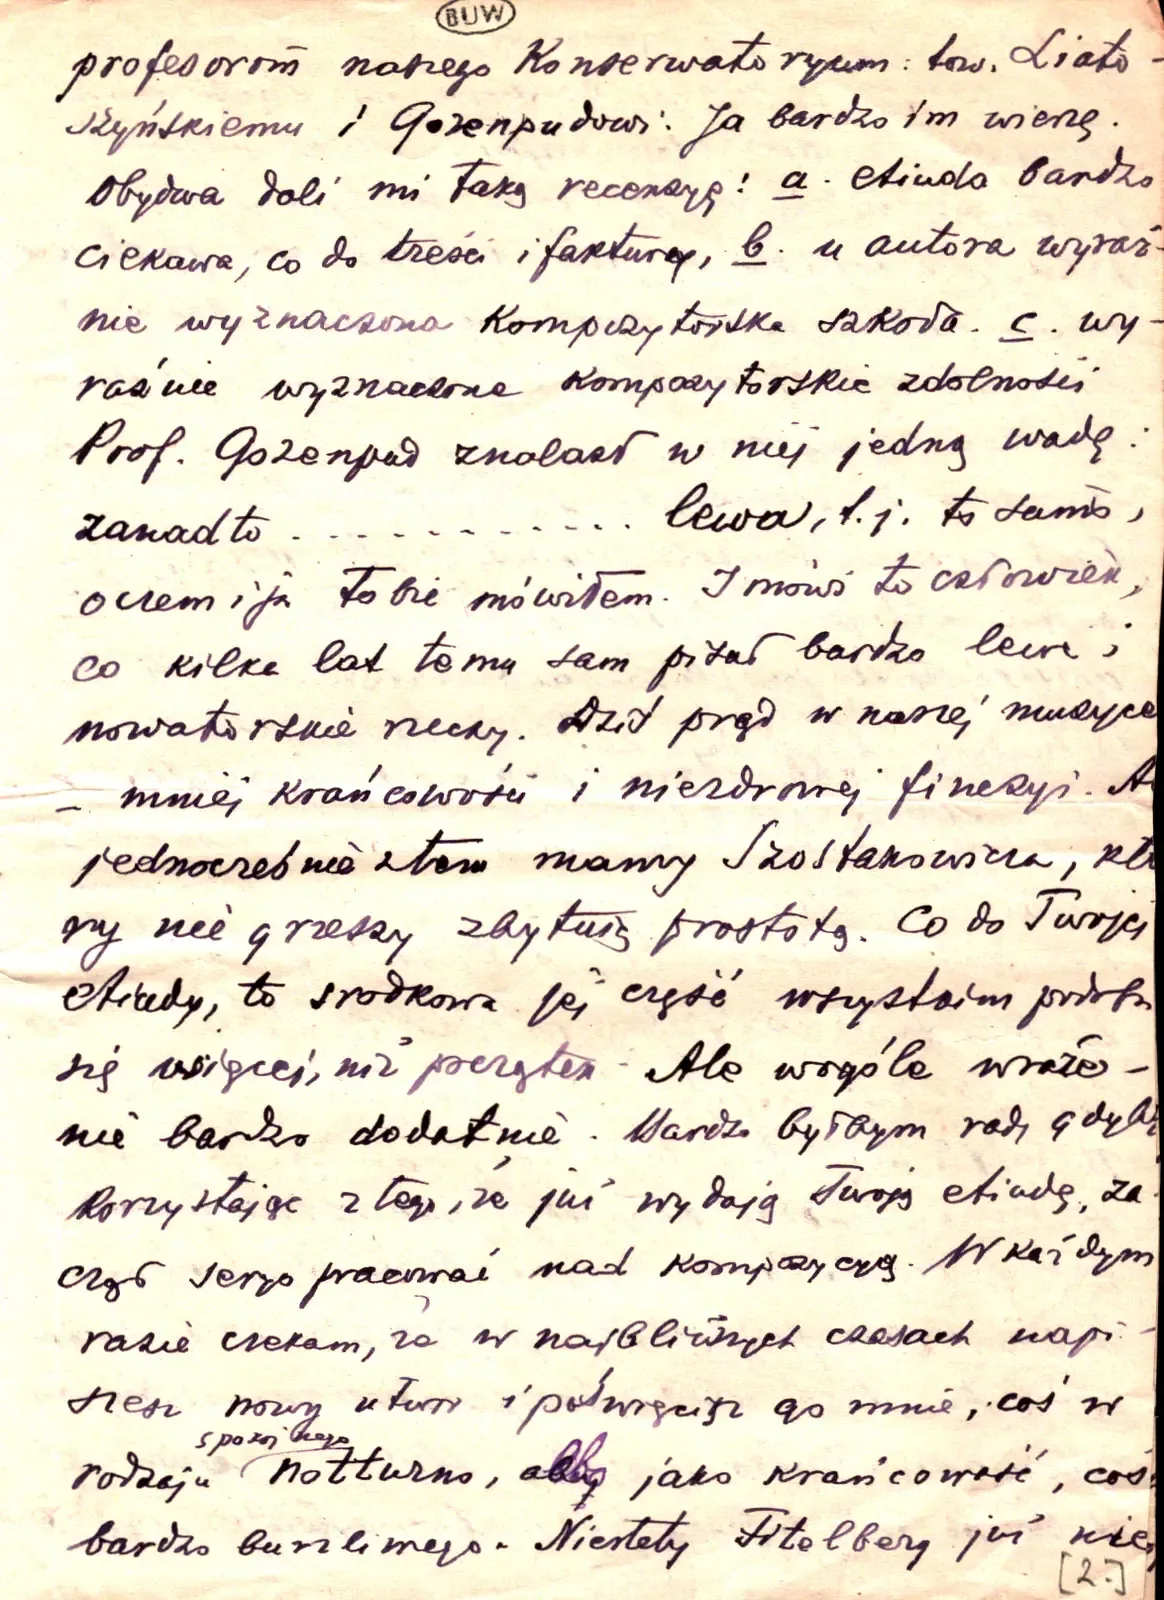 BUW
profesorom naszego Konserwatoryum: tow. Liato-
szyńskiemu i Gozenpudowi. Ja bardzo im wierzę.
Obydwa dali mi taką recenzyę: a. etiuda bardzo
ciekawa, co do treści i faktury, b. u autora wyraź-
nie wyznaczona kompozytorska szkoła. c. wy-
raźnie wyznaczone kompozytorskie zdolności
Prof. Gozenpud znalazł w niej jedną wadę:
zanadto .......... lewa, t.j. to samo,
o czem i ja tobie mówiłem. I mówi to człowiek,
co kilka lat temu sam pisał bardzo lewe i
nowatorskie rzeczy. Dziś prąd w naszej muzyce
– mniej krańcowości i niezdrowej finezyi. A
jednocześnie z tem mamy Szostakowicza, któ
ry nie grzeszy zbytnią prostotą. Co do Twojej
etiudy, to srodkowa jej część wszystkim podoba
się więcej, niż początek. Ale wogóle wraże-
nie bardzo dodatnie. Bardzo byłbym rad, gdybyś
korzystając z tego, że już wydają Twoją etiudę, za
czął seryo pracować nad kompozycyą. W każdym
razie czekam, że w najbliższych czasach napi-
szesz nowy utwór i poświęcisz go mnie, coś w
rodzaju spokojnego notturno, alby jako krańcowość, coś
bardzo burzliwego. Niestety Fitelberg już nie
[2.]